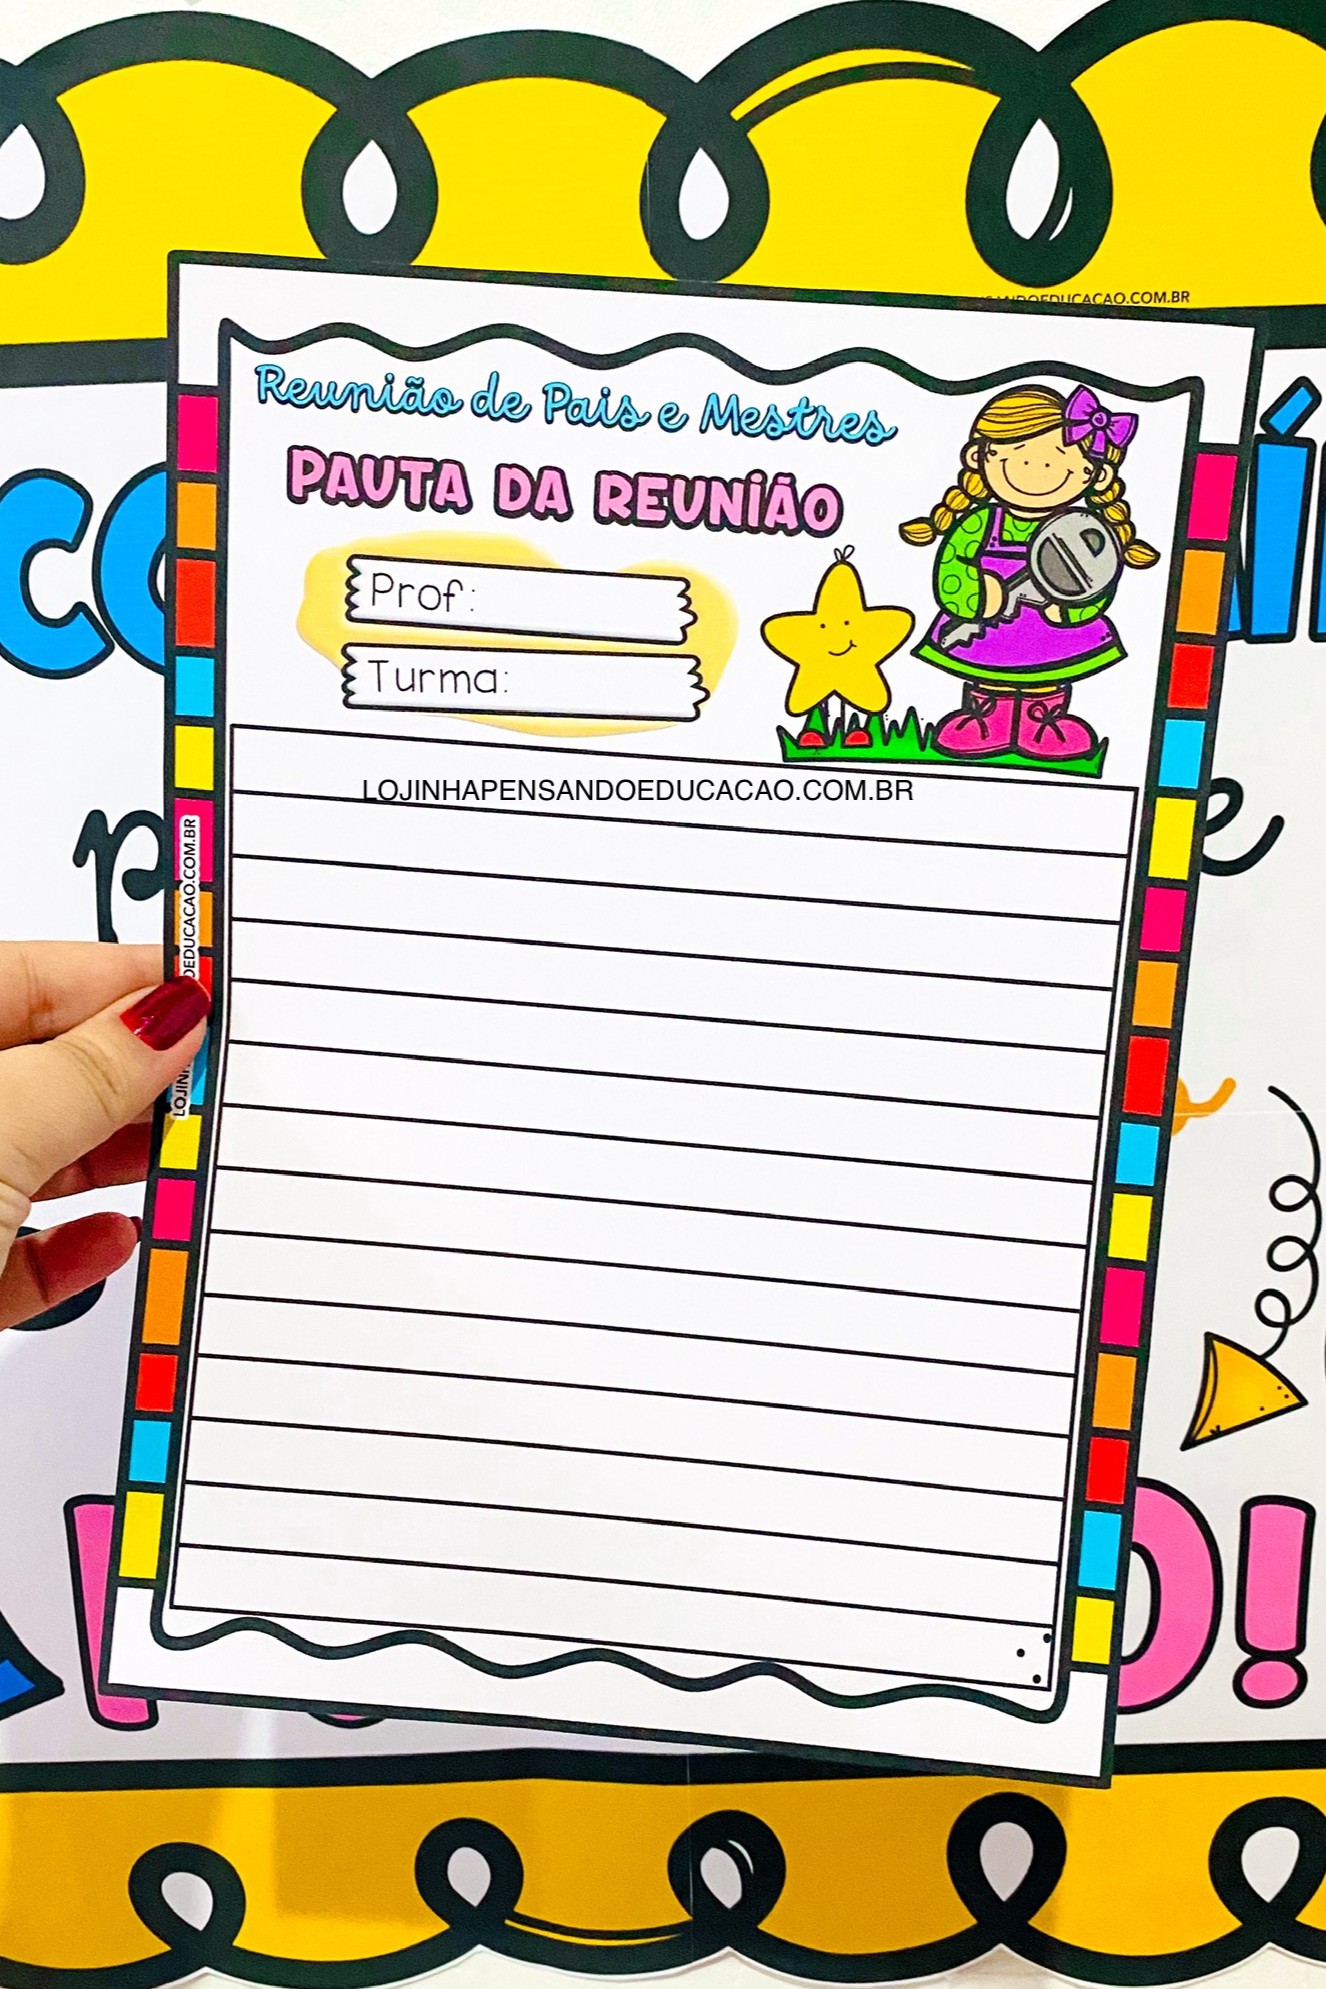 DOEDUCACAO.COM.BR
Reunião de Pais e Mestres
PAUTA DA REUNIÃO
Prof:
Turma:
LOJINHAPENSANDOEDUCACAO.COM.BR